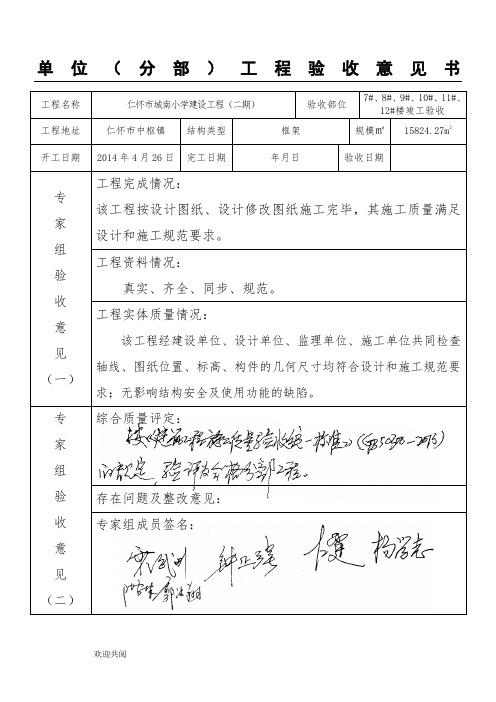 单位（分部）工程验收意见书
工程名称 仁怀市城南小学建设工程（二期） 验收部位 7#、8#、9#、10#、11#、
12#楼竣工验收
工程地址 仁怀市中枢镇 结构类型 框架 规模㎡ 15824.27㎡
开工日期 2014年4月26日 完工日期 年月日 验收日期
专家组验收意见（一）
工程完成情况：
该工程按设计图纸、设计修改图纸施工完毕，其施工质量满足
设计和施工规范要求。
工程资料情况：
真实、齐全、同步、规范。
工程实体质量情况：
该工程经建设单位、设计单位、监理单位、施工单位共同检查
轴线、图纸位置、标高、构件的几何尺寸均符合设计和施工规范要
求；无影响结构安全及使用功能的缺陷。
专家组验收意见（二）
综合质量评定：
按《建筑工程施工质量验收统一标准》（GB50300—2013）
的规定，验评为合格分部工程。
存在问题及整改意见：
专家组成员签名：
钟正强 杨学志
欢迎共阅